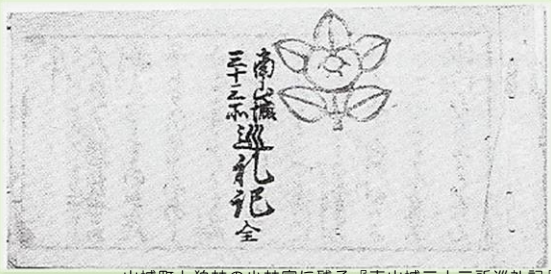 南山城
三十三所
巡礼記 全